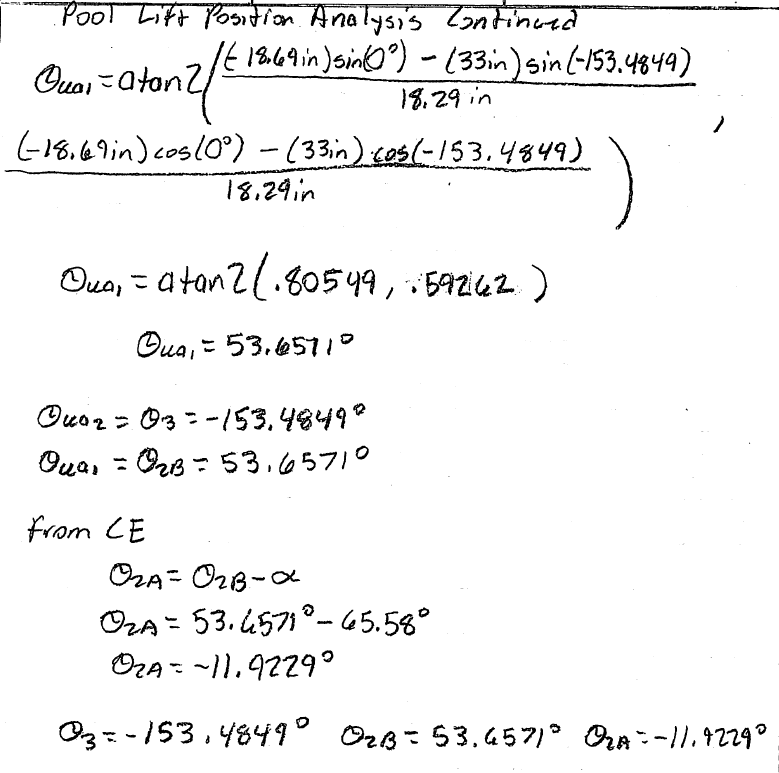 Pool Lift Position Analysis Continued
Θua₁ = atan2((-18.69in)sin(0°) - (33in)sin(-153.4849)
18.29 in ,
(-18.69in)cos(0°) - (33in)cos(-153.4849)
18.29in )
Θua₁ = atan2(.80549, .59262)
Θua₁ = 53.6571°
Θua₂ = Θ₃ = -153.4849°
Θua₁ = Θ₂B = 53.6571°
from CE
Θ₂A = Θ₂B - α
Θ₂A = 53.6571° - 65.58°
Θ₂A = -11.9229°
Θ₃ = -153.4849° Θ₂B = 53.6571° Θ₂A = -11.9229°